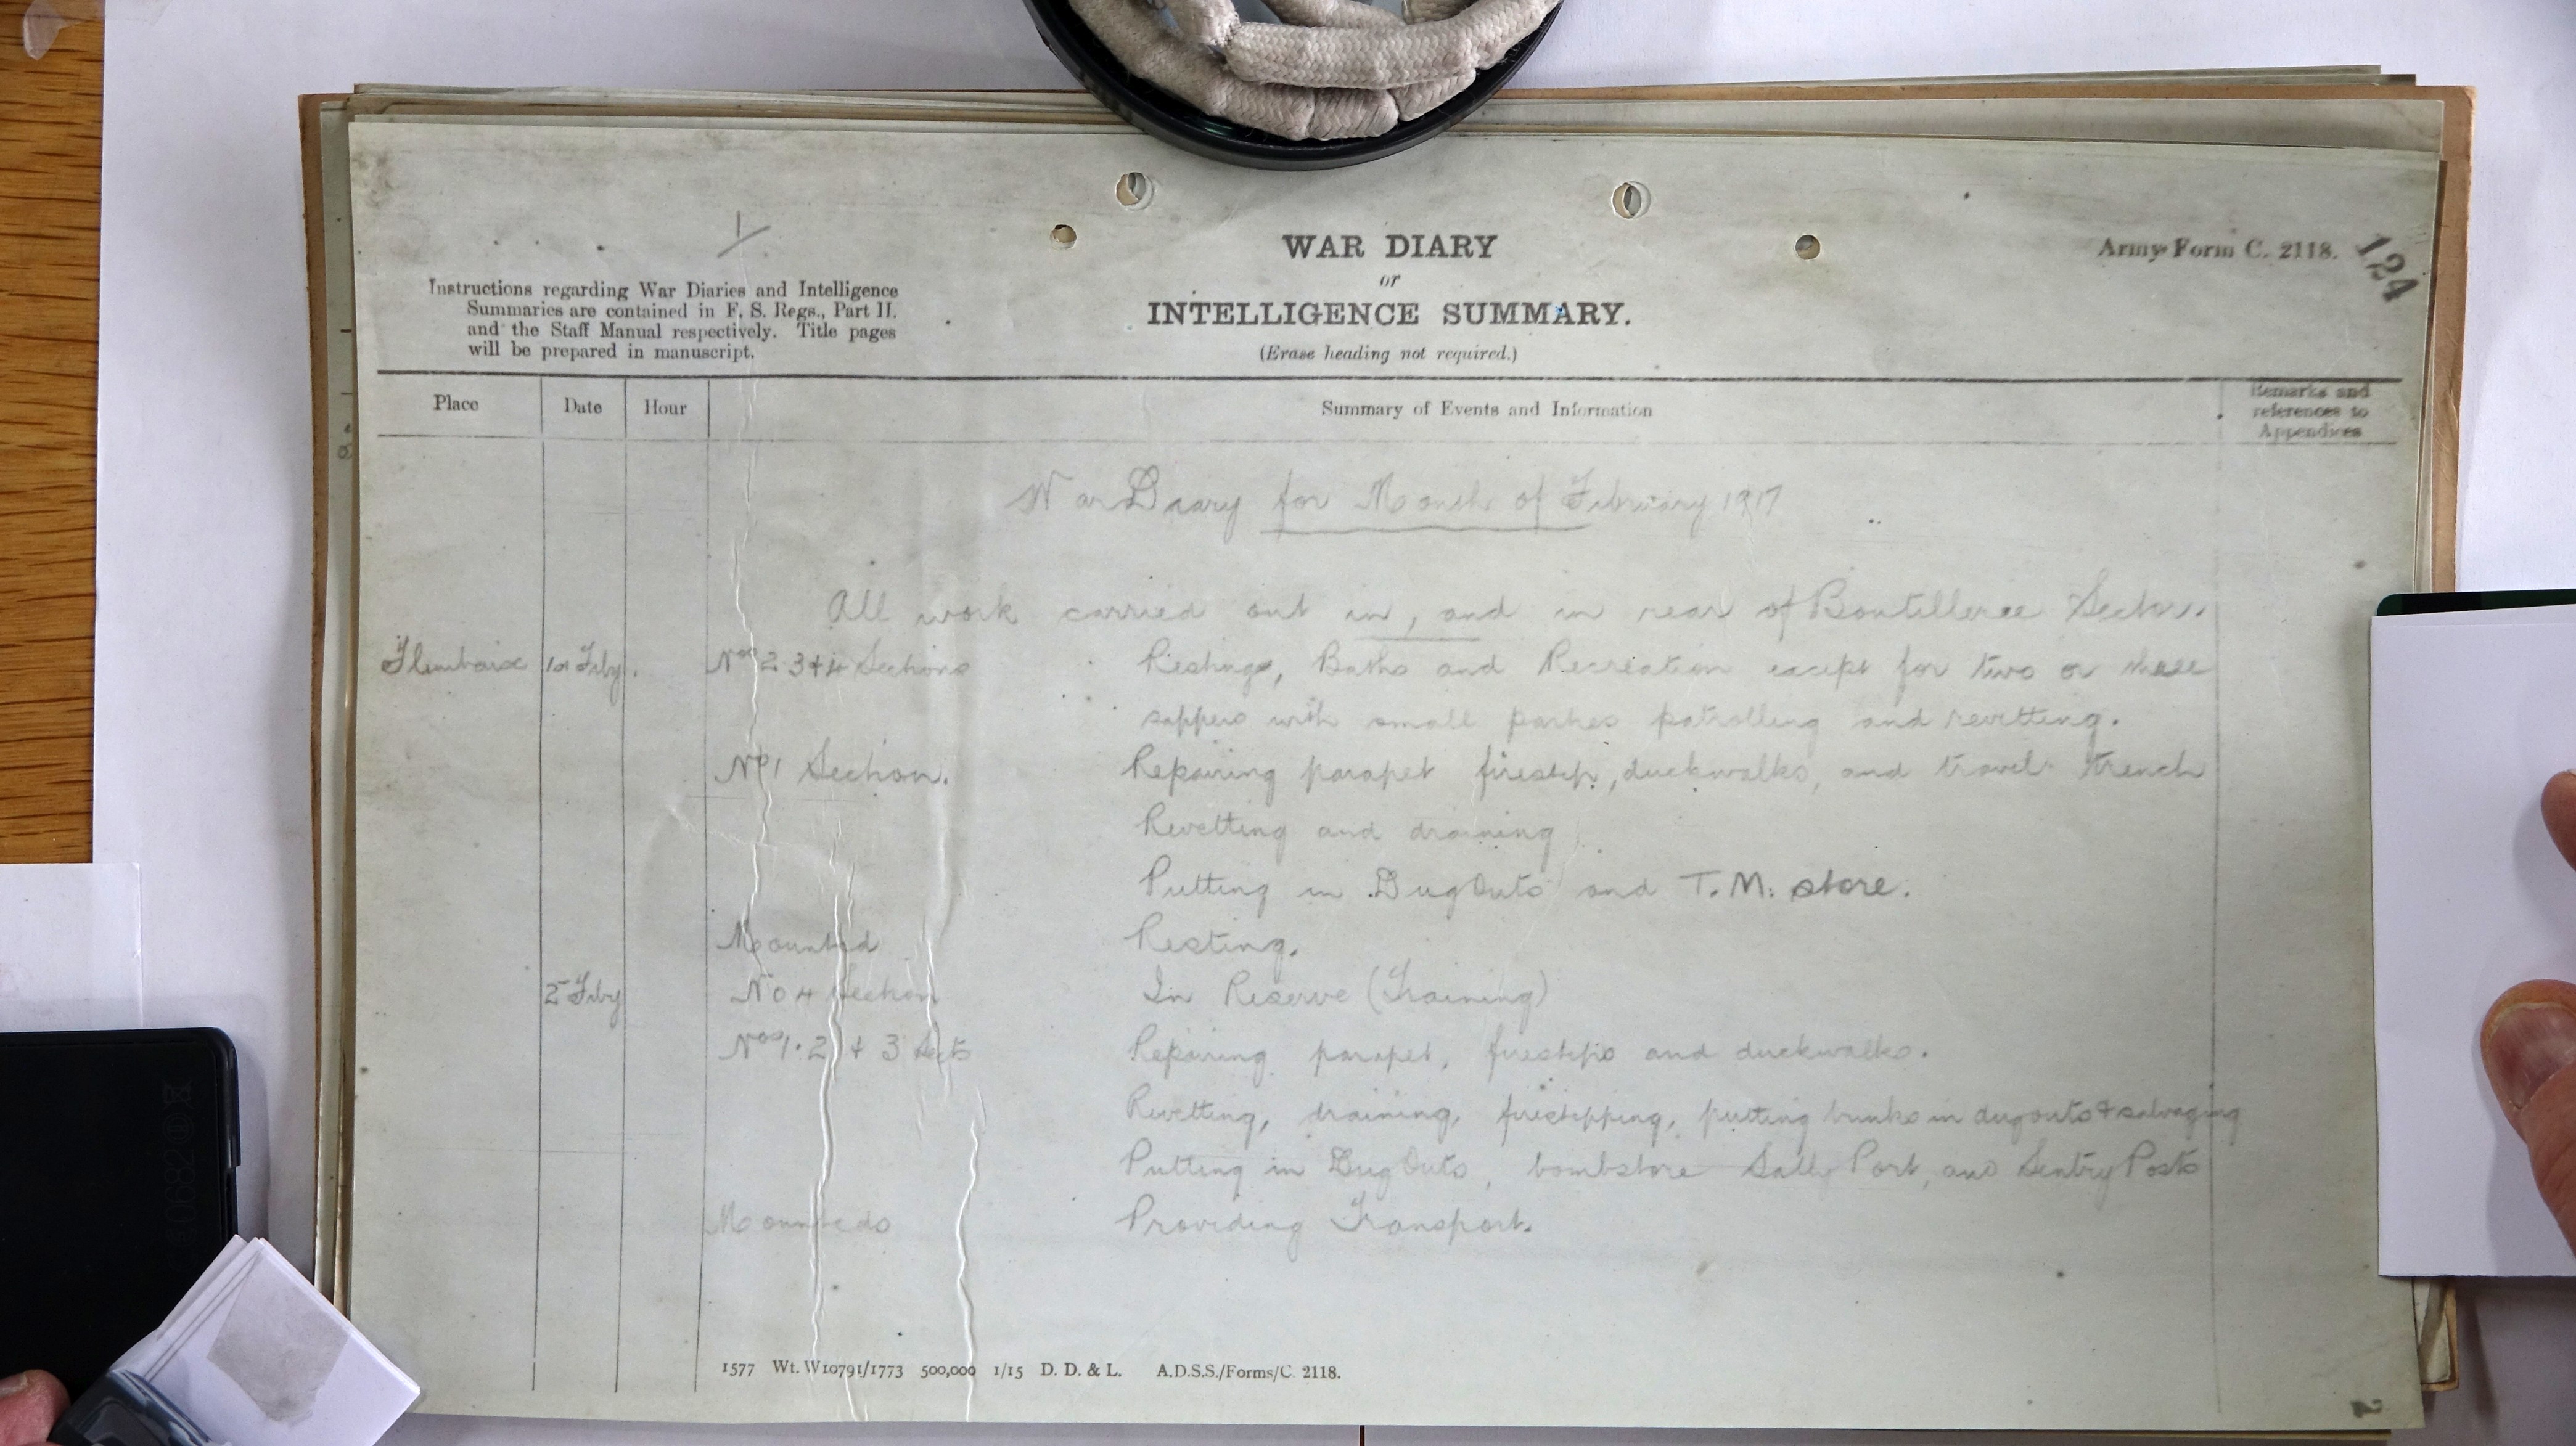 WAR DIARY
or
INTELLIGENCE SUMMARY.
(Erase heading not required.)
Army Form C. 2118.
124
Instructions regarding War Diaries and Intelligence
Summaries are contained in F. S. Regs., Part II.
and the Staff Manual respectively. Title pages
will be prepared in manuscript.
Place Date Hour Summary of Events and Information Remarks and references to Appendices
War Diary for Month of February 1917
All work carried out in, and in rear of Boutillerie Sector.
Fleurbaix 1st Feby. Nos 2 3 & 4 Sections Resting, Baths and Recreation except for two or three
sappers with small parties patrolling and revetting.
No 1 Section. Repairing parapet firestep, duckwalks, and travel trench
Revetting and draining
Putting in Dug Outs and T.M. store.
Mounted Resting.
2 Feby No 4 Section In Reserve (Training)
Nos 1. 2 & 3 Sects Repairing parapet, firesteps and duckwalks.
Revetting, draining, firestepping, putting bunks in dugouts & salvaging
Putting in Dug Outs, bombstore Sally Port, and Sentry Posts
Mounteds Providing Transport.
1577 Wt. W10791/1773 500,000 1/15 D. D. & L. A.D.S.S./Forms/C. 2118.